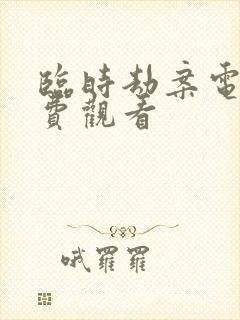 臨時劫案電
費觀看
哦羅羅